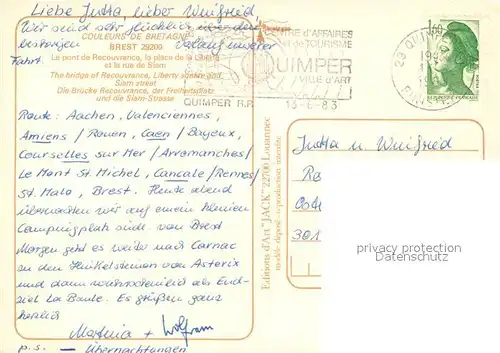 Liebe Jutta, lieber Winfried,
Wir sind sehr glücklich über den
COULEURS DE BRETAGNE
BREST 29200
bisherigen Verlauf unserer
Fahrt.
Le pont de Recouvrance, la place de la Liberté
et la rue de Siam
The bridge of Recouvrance, Liberty square and
Siam street
Die Brücke Recouvrance, der Freiheitsplatz
und die Siam-Strasse
CENTRE d'AFFAIRES
et de TOURISME
QUIMPER
VILLE d'ART
QUIMPER R.P.
13-6-83
1,60
29 QUIMPER
Route: Aachen, Valenciennes,
Amiens / Rouen, Caen / Bayeux,
Courselles sur Mer / Arromanches /
Le Mont St. Michel, Cancale / Rennes /
St. Malo, Brest. Heute abend
übernachten wir auf einem kleinen
Campingplatz südl. von Brest
Morgen geht es weiter nach Carnac
zu den Hinkelsteinen von Asterix
und dann wahrscheinlich als End-
ziel La Baule. Es grüßen ganz
herzlich
Martina + Wolfram
p.s. — Übernachtungen
Editions d'Art "JACK" 22700 Louannec
modèle déposé - reproduction interdite
Jutta u Winfried
301
privacy protection